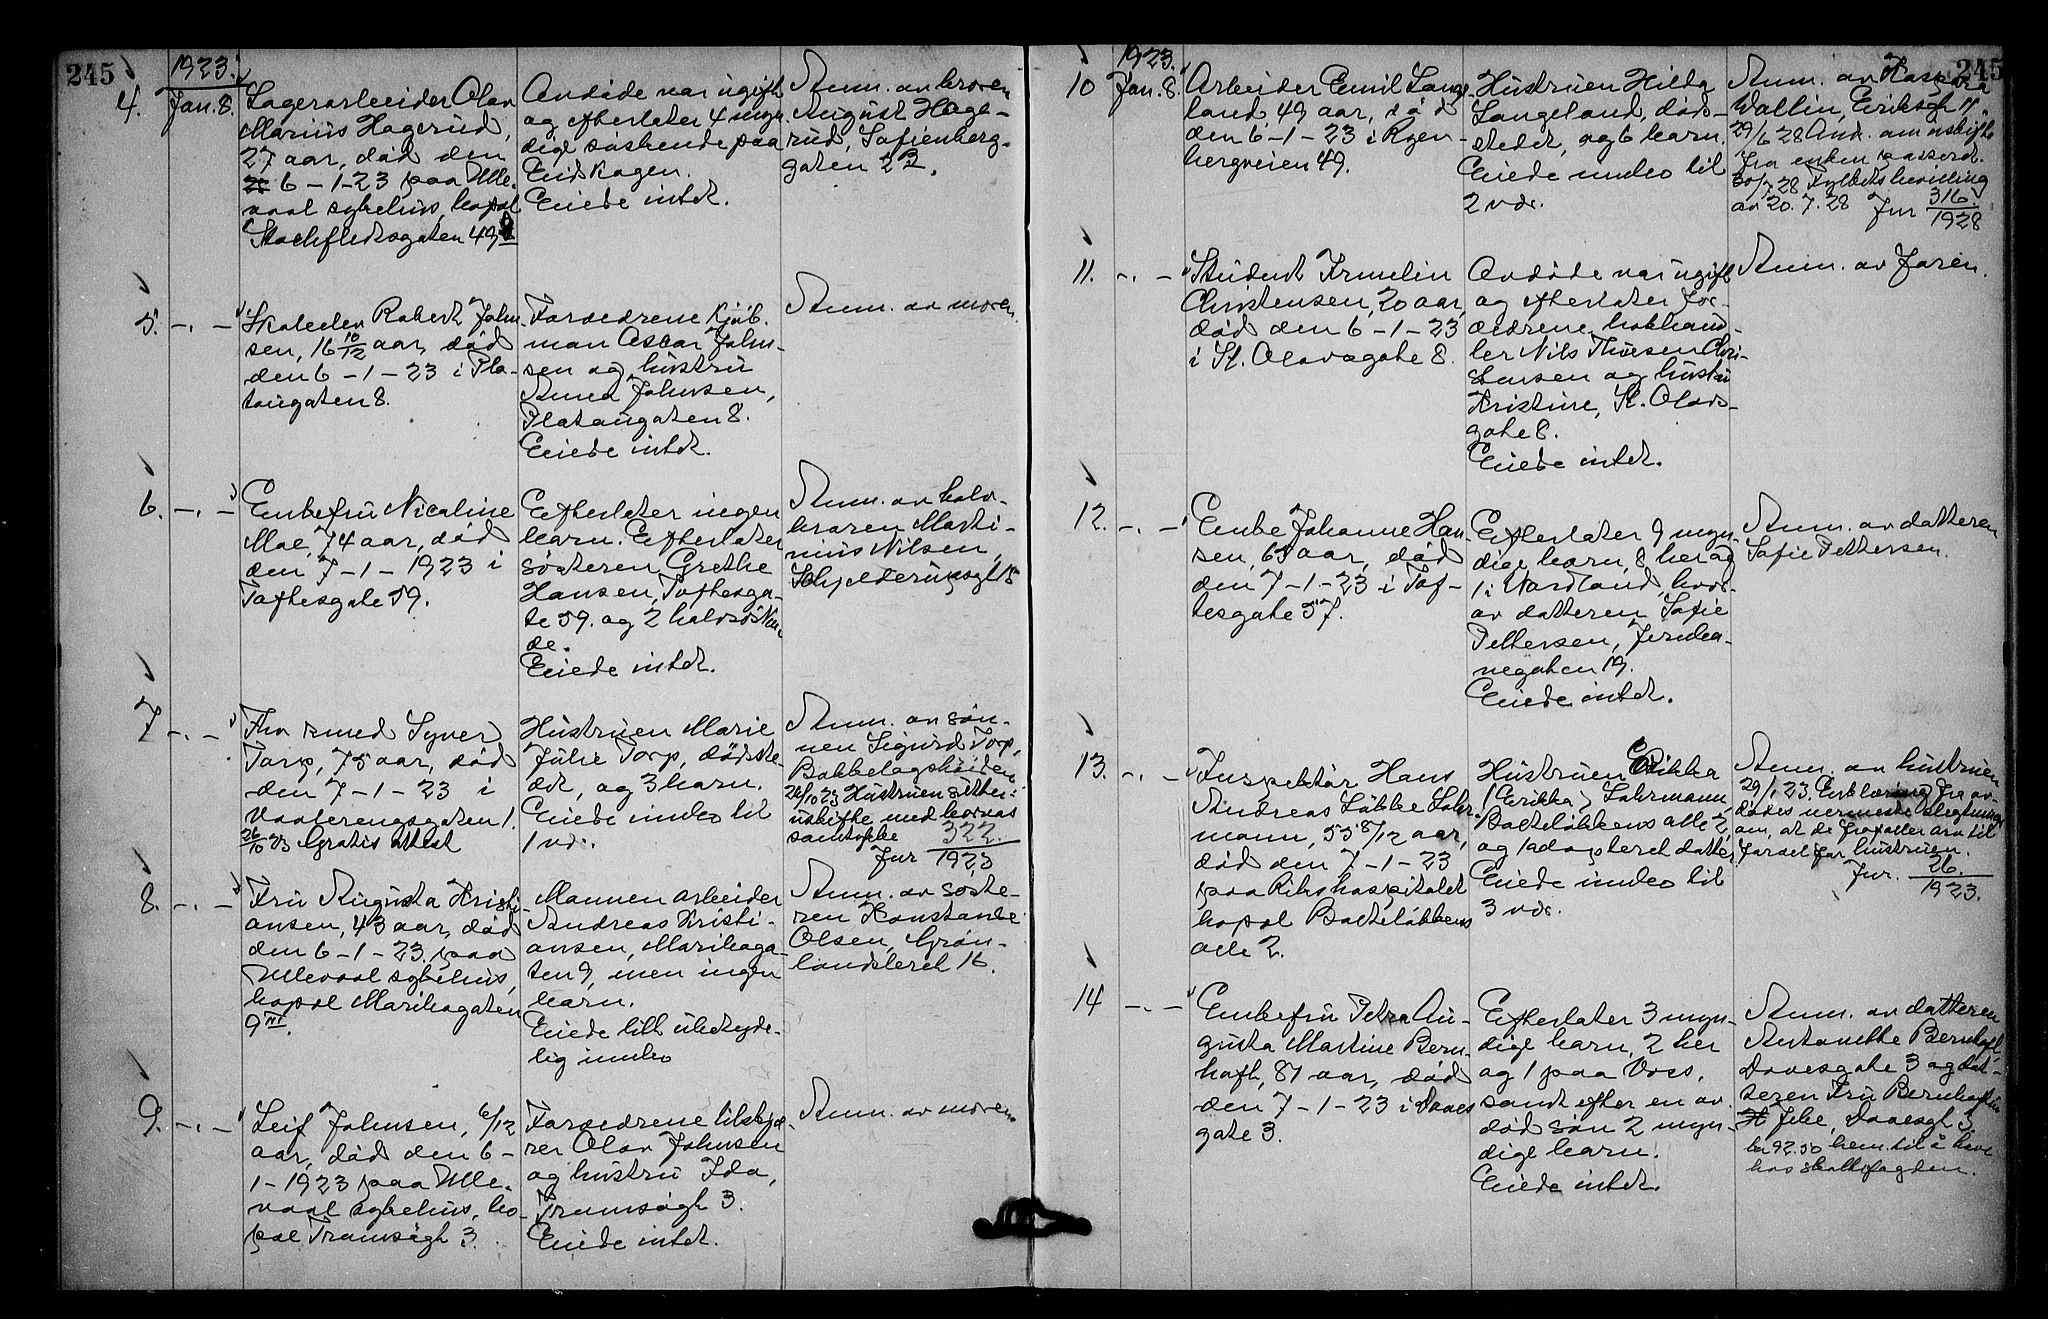 245
1923.
4. Jan. 8.
Lagerarbeider Olav
Marius Hagerud,
27 aar, død den
6 - 1 - 23 paa Ulle-
vaal sykehus, bopæl
Stockfletsgaten 49
Avdøde var ugift
og efterlater 4 myn
dige søskende paa
Eidskogen.
Eiede intet.
Anm. av broren
August Hage-
rud, Sofienberg-
gaten 2 B.
5. -.-
Skoleelev Robert John
sen, 16 10/12 aar, død
den 6 - 1 - 23 i Pla-
tougaten 8.
Forældrene kjøb-
man Oscar John-
sen og hustru
Anna Johnsen,
Platougaten 8.
Eiede intet.
Anm. av moren.
6. -.-
Enkefru Nicoline
Moe, 74 aar, død
den 7 - 1 - 1923 i
Toftesgate 59.
Efterlater ingen
barn. Efterlater
søsteren Grethe
Hansen, Toftesga-
te 59. og 2 halvsøsken
de.
Eiede intet.
Anm. av halv-
broren Marti-
nius Nilsen,
Schjelderupsgt 15
7 -.-
Syver
Torp, 75 aar, død
den 7 - 1 - 23 i
Vaalerengsgaten 1.
26/10 23 Gratis attest
Hustruen Marie
Julie Torp, dødste-
det, og 3 barn.
Eiede indbo til
1 vd..
Anm. av søn-
nen Sigurd Torp,
Bækkelagshøiden
26/10 23 Hustruen sitter i
uskifte med barnas
samtykke 322.
Jnr 1923
8. -.-
Fru Augusta Kristi
ansen, 43 aar, død
den 6 - 1 - 23 paa
Ullevaal sykehus,
bopæl Maribogaten
9 III.
Mannen arbeider
Andreas Kristi-
ansen, Mariboga-
ten 9, men ingen
barn.
Eiede litt ubetyde-
lig indbo
Anm. av søste-
ren Konstanse
Olsen, Grøn-
landsleret 16.
9. -.-
Leif Johnsen, 6/12
aar, død den 6 -
1 - 1923 paa Ulle-
vaal sykehus, bo
pæl Tromsøgt 3.
Forældrene
Olav Johnsen
og hustru Ida,
Tromsøgt 3.
Eiede intet.
Anm. av moren
245
1923.
10 Jan. 8.
Arbeider Emil Lange
land, 49 aar, død
den 6 - 1 - 23 i Ryen-
bergveien 49.
Hustruen Hilda
Langeland, døds-
stedet, og 6 barn.
Eiede indbo til
2 vdr.
Anm. av
Wallin, Eriksgt 11.
29/6 28 Ans. om uskifte
fra enken passert.
30/7 28 Fylkets bevilling
av 20. 7. 28 Jnr 316
1928
11. -.-
Student Frmelin
Christensen, 20 aar,
død den 6 - 1 - 23
i St. Olavsgate 8.
Avdøde var ugift
og efterlater for-
ældrene bokhand-
ler Nils Thuesen Chri-
stensen og hustru
Kristine, St. Olavs-
gate 8.
Eiede intet.
Anm. av faren.
12. -.-
Enke Johanne Han
sen, 65 aar, død
den 7 - 1 - 23 i Tof-
tesgate 57.
Efterlater 9 myn-
dige barn, 8 her og
1 i Nordland, hvor-
av datteren Sofie
Pettersen, Jernba-
negaten 19.
Eiede intet.
Anm. av datteren
Sofie Pettersen.
13. -.-
Inspektør Hans
Andreas Løkke Lohr-
mann, 55 8/12 aar,
død den 7 - 1 - 23
paa Rikshospitalet
bopæl Bolteløkkens
alle 2.
Hustruen Erikka
(Erikka) Lohrmann,
Bolteløkkens alle 2,
og 1 adopteret datter
Eiede indbo til
3 vdr.
Anm. av hustruen
29/1 23. Erklæring fra av-
dødes nermeste slegtninge
om, at de frafaller arv til
fordel for hustruen.
Jnr. 26.
1923.
14 -.-
Enkefru Petra Au-
gusta Martine Bern-
hoft, 81 aar, død
den 7 - 1 - 23 i Daaes
gate 3.
Efterlater 3 myn-
dige barn, 2 her
og 1 paa Voss,
samt efter en av
død søn 2 myn-
dige barn.
Eiede intet.
Anm. av datteren
Antonette Bernhoft
Daaesgate 3 og dat-
teren Fru
Daaesgt 3
kr 92.50 til å heve
hos skattefogden.